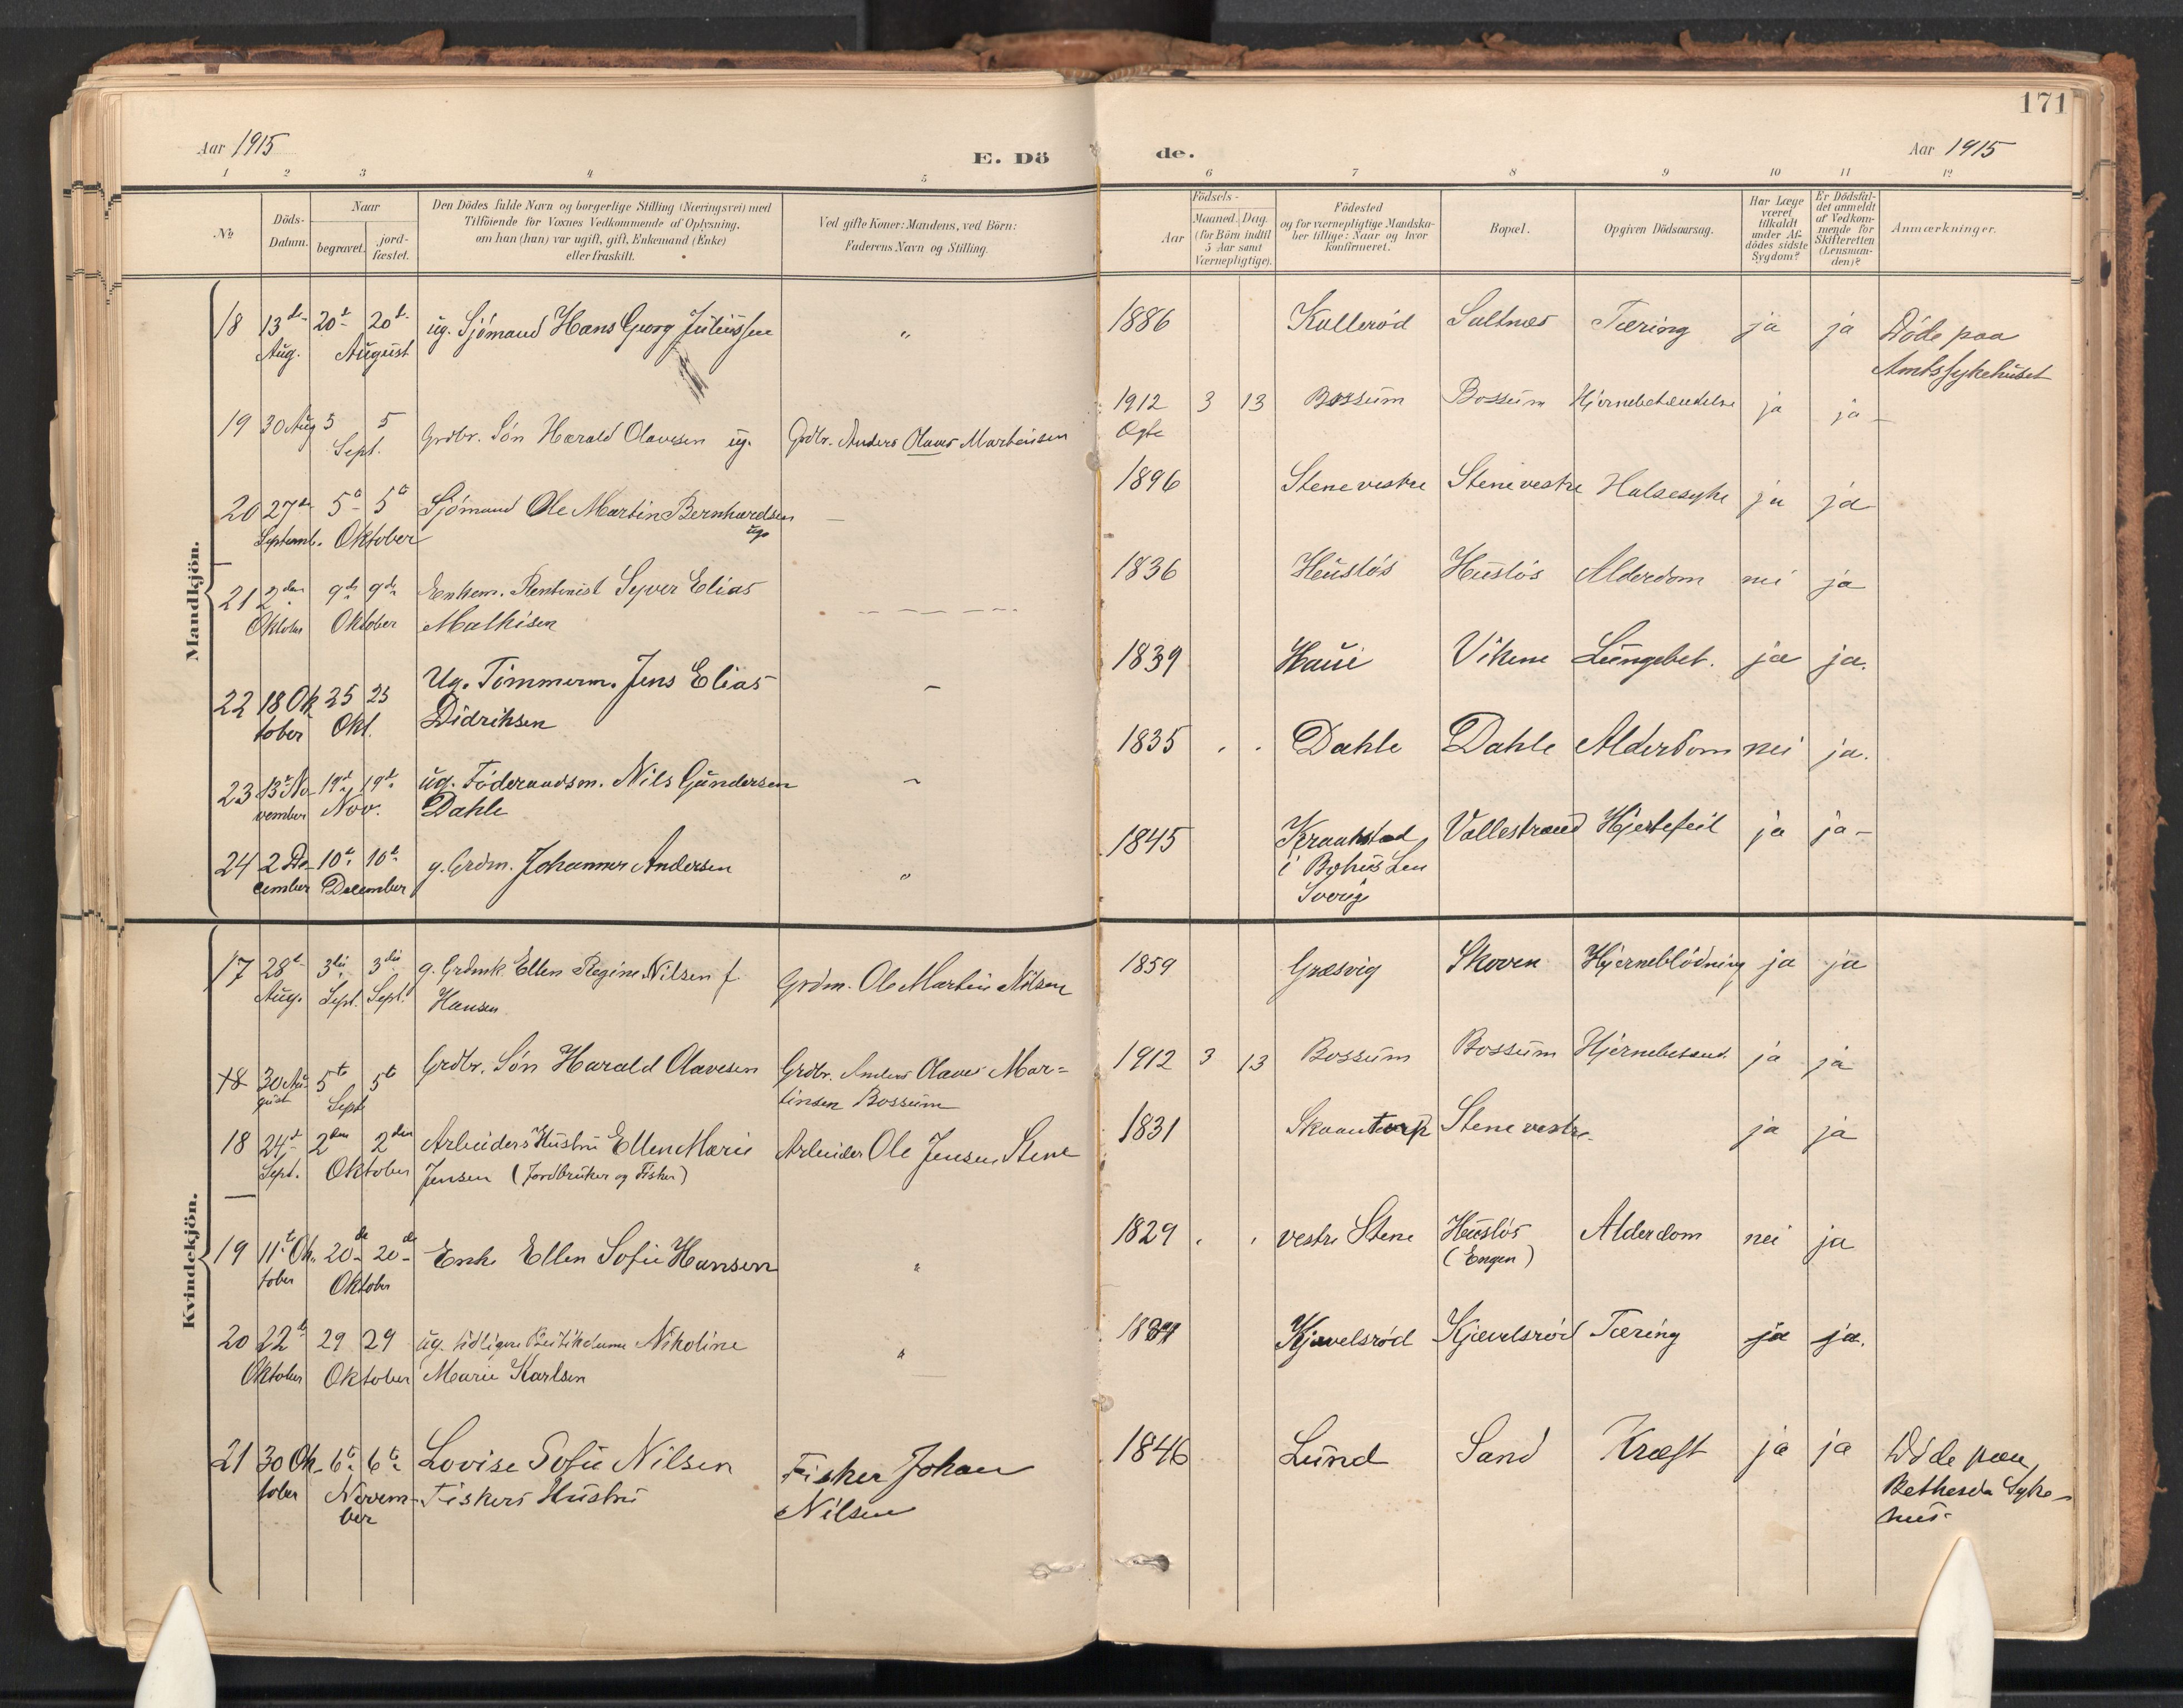 171
Aar 1915
E. Dö
de.
Aar 1915
1 2 3 4 5 6 7 8 9 10 11 12
№
Döds-
Datum.
Naar
begravet.
jord-
fæstet.
Den Dödes fulde Navn og borgerlige Stilling (Næringsvei) med
Tilföiende for Voxnes Vedkommende af Oplysning,
om han (hun) var ugift, gift, Enkemand (Enke)
eller fraskilt.
Ved gifte Koner: Mandens, ved Börn:
Faderens Navn og Stilling.
Födsels-
Aar
Maaned. Dag.
(for Börn indtil
5 Aar samt
Værnepligtige).
Födested
og for værnepligtige Mandska-
ber tillige: Naar og hvor
Konfirmeret.
Bopæl.
Opgiven Dödsaarsag.
Har Læge
været
tilkaldt
under Af-
dödes sidste
Sygdom?
Er Dödsfal-
det anmeldt
af Vedkom-
mende for
Skifteretten
(Lensman-
den)?
Anmærkninger.
Mandkjön.
18 13de 20de 20de ug. Sjömand Hans Georg Juliussen " 1886 Kallerød Saltnes Tæring ja ja Döde paa
Aug. August Amtssykehuset
19 30 Aug 5 5 Grdbr. Sön Harald Olavesen ug. Grdbr. Anders Olaves Martinsen 1912 3 13 Bossum Bossum Hjernebetændelse ja ja
Sept. Ægte
20 27de 5te 5te Sjömand Ole Martin Bernhardsen 1896 Stene vestre Stene vestre Halsesyke ja ja
Septemb. Oktober ug.
21 2den 9de 9de Enkem. Rentenist Syver Elias 1836 Huslös Huslös Alderdom nei ja
Oktober Oktober Mathisen
22 18 Ok 25 25 Ug. Tömmerm. Jens Elias 1839 Haue Vikene Lungebet. ja ja.
tober Okt. Didriksen
23 13de No 19de 19de ug. Föderaadsm. Nils Gundersen 1835 Dahle Dahle Alderdom nei ja.
vember Nov. Dahle
24 2 De 10de 10de g. Grdm. Johannes Andersen " 1845 Kraakstad Vallestrand Hjertefeil ja ja
cember December i Bohus Len
Sverig
Kvindekjön.
17 28de 3die 3die g. Grdmk Ellen Regine Nilsen f. Grdm. Ole Martin Nilsen 1859 Græsvig Skoven Hjerneblödning ja ja
Aug. Sept. Sept. Hansen
18 30 Au 5te 5te Grdbr. Sön Harald Olavesen Grdbr. Anders Olaves Mar= 1912 3 13 Bossum Bossum Hjernebetænd. ja ja
gust Sept tinsen Bossum
18 24de 2den 2den Arbeiders Hustru Ellen Marie Arbeider Ole Jensen Stene 1831 Skaantorp Stene vestre ja ja
Sept. Oktober Jensen (Jordbruker og Fisker)
19 11te Ok. 20de 20de Enke Ellen Sofie Hansen " 1829 vestre Stene Huslös Alderdom nei ja
tober Oktober (Engen)
20 22de 29 29 ug. tidligere Butikdame Nikoline " Kjævelsröd Kjævelsröd Tæring ja ja.
Oktober Oktober Marie Karlsen
21 30 Ok 6te 6te Lovise Sofie Nilsen Fisker Johan 1846 Lund Sand Kræft ja ja Döde paa
tober Novem- Fiskers Hustru Nilsen Bethesda Syke-
ber hus.